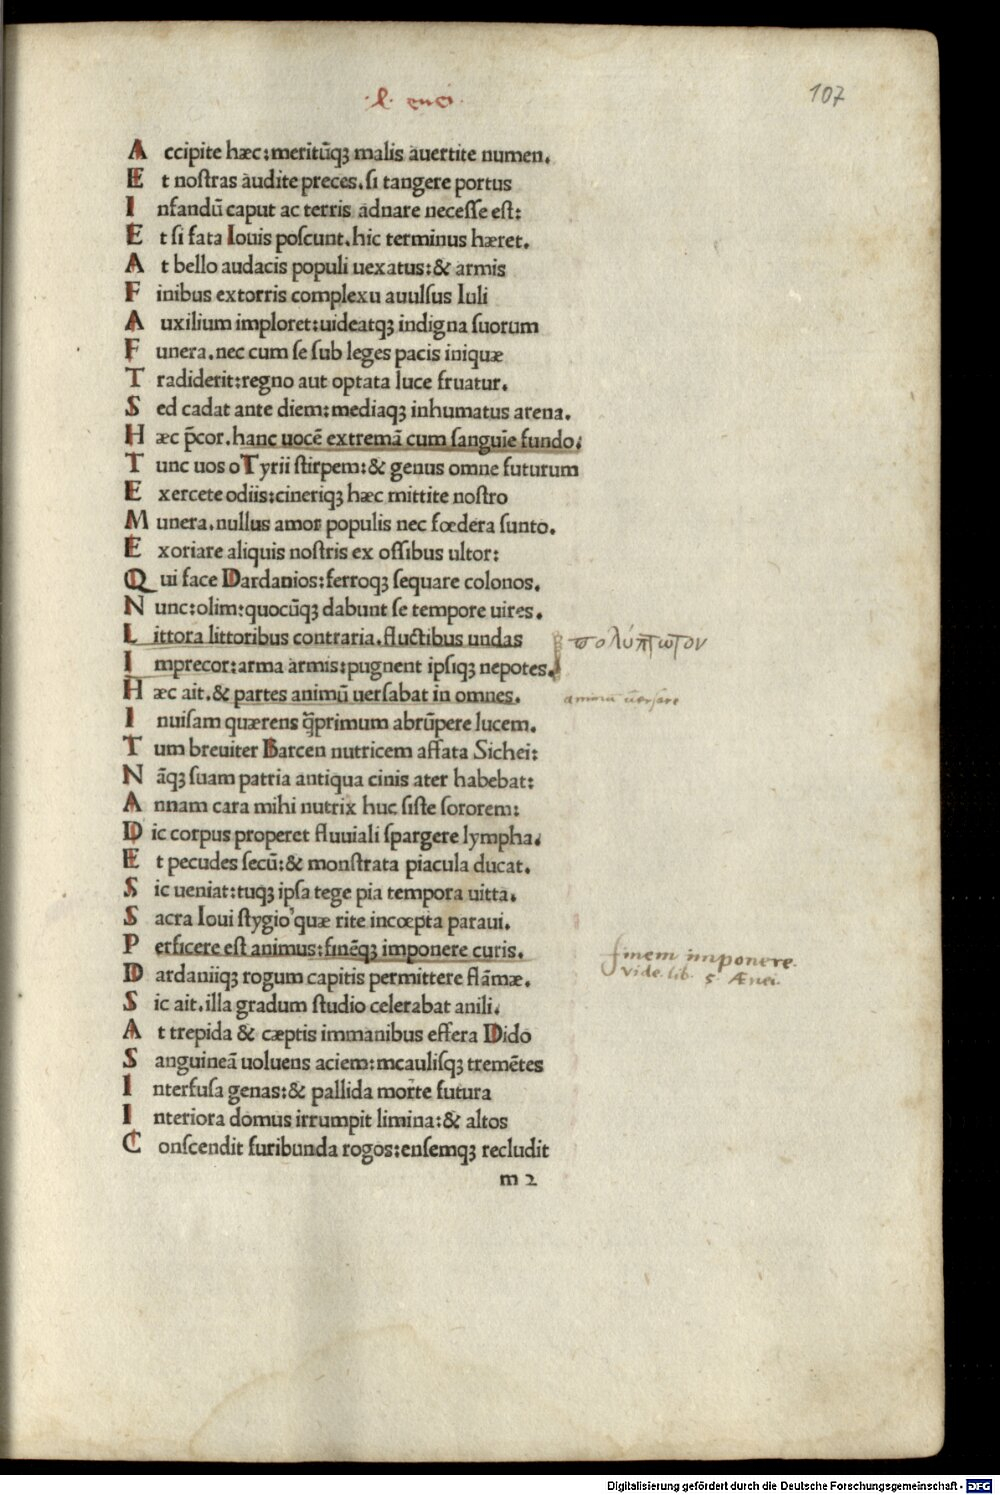 107
A ccipite hæc:meritūqꝫ malis auertite numen.
E t noſtras audite preces.ſi tangere portus
I nfandū caput ac terris adnare neceſſe eſt:
E t ſi fata Iouis poſcunt.hic terminus hæret.
A t bello audacis populi uexatus:& armis
F inibus extorris complexu auulſus Iuli
A uxilium imploret:uideatqꝫ indigna ſuorum
F unera.nec cum ſe ſub leges pacis iniquæ
T radiderit:regno aut optata luce fruatur.
S ed cadat ante diem:mediaqꝫ inhumatus arena.
H æc p̄cor.hanc uocē extremā cum ſanguīe fundo.
T unc uos o Tyrii ſtirpem:& genus omne futurum
E xercete odiis:cineriqꝫ hæc mittite noſtro
M unera.nullus amor populis nec fœdera ſunto.
E xoriare aliquis noſtris ex oſſibus ultor:
Q ui face Dardanios:ferroqꝫ ſequare colonos.
N unc:olim:quocūqꝫ dabunt ſe tempore uires.
L ittora littoribus contraria.fluctibus undas
πολύπτωτον
I mprecor:arma armis:pugnent ipſiqꝫ nepotes.
H æc ait.& partes animū uerſabat in omnes.
animū uerſare
I nuiſam quærens q̄primum abrūpere lucem.
T um breuiter Barcen nutricem affata Sichei:
N āqꝫ ſuam patria antiqua cinis ater habebat:
A nnam cara mihi nutrix huc ſiſte ſororem:
D ic corpus properet fluuiali ſpargere lympha.
E t pecudes ſecū:& monſtrata piacula ducat.
S ic ueniat:tuqꝫ ipſa tege pia tempora uitta.
S acra Ioui ſtygio'quæ rite incœpta paraui.
P erficere eſt animus:finēqꝫ imponere curis.
finem imponere.
vide. lib. 5. Ænei.
D ardaniiqꝫ rogum capitis permittere flāmæ.
S ic ait.illa gradum ſtudio celerabat anili.
A t trepida & cæptis immanibus effera Dido
S anguineā uoluens aciem:mcauliſqꝫ tremētes
I nterfuſa genas:& pallida morte futura
I nteriora domus irrumpit limina:& altos
C onſcendit furibunda rogos:enſemqꝫ recludit
m 2
Digitalisierung gefördert durch die Deutsche Forschungsgemeinschaft - DFG